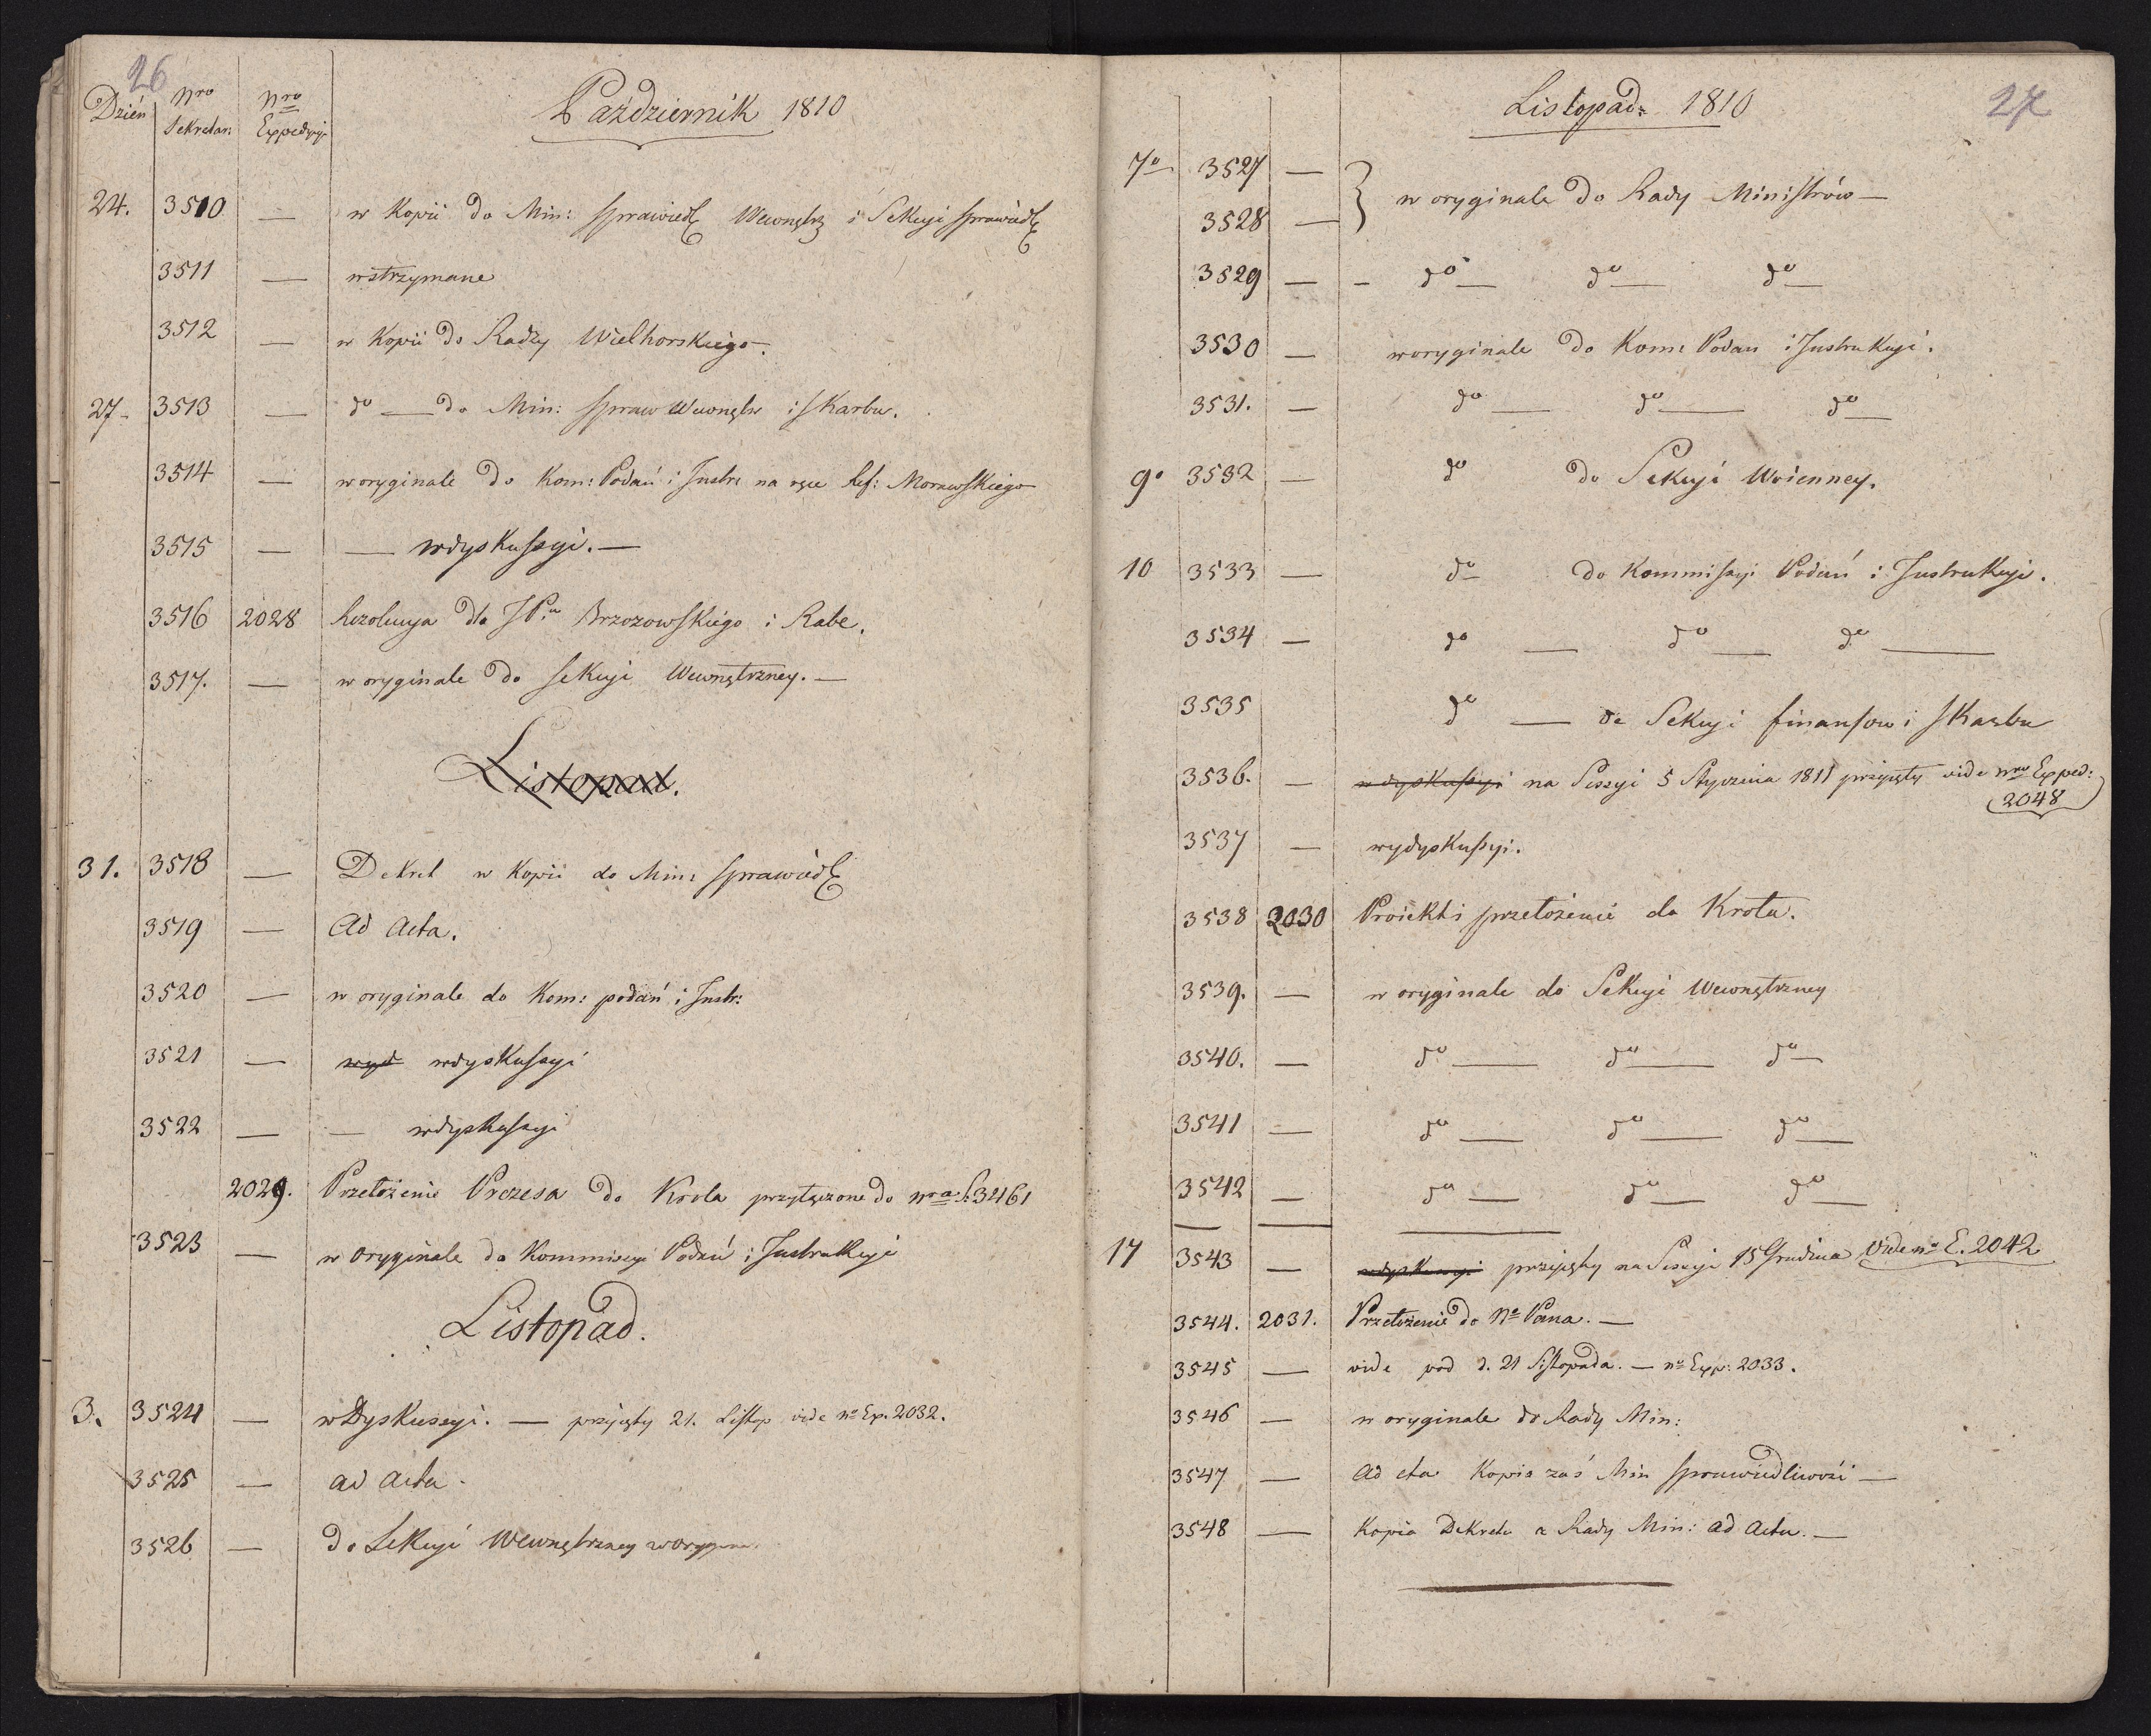 26
Dzień Nro Sekretar: Nro Expedycyi
Październik 1810
24. 3510 — w Kopii do Min: sprawiedl Wewnętrz i Sekcyi sprawiedl
3511 — wstrzymane
3512 — w Kopii do Radzy Wielhorskiego.
27 - 3513 — do — do Min: spraw Wewnętr i skarbu.
3514 — w oryginale do Kom: Podań i Instr: na ręce Ref: Morawskiego
3515 — — w dyskussyi. —
3516 2028 Rezolucya dla JPn Brzozowskiego i Rabe.
3517. — w oryginale do sekcyi Wewnętrzney. —
Listopad.
31. 3518 — Dekret w Kopii do Min: sprawiedl
3519 — Ad Acta.
3520 — w oryginale do Kom: podań i Instr:
3521 — wyd w dyskussyi
3522 — — w dyskussyi
2029. Przełożenie Prezesa do Krola przyłączone do nra S: 3461
3523 — w oryginale do Kommissyi Podań i Instrukcyi
Listopad.
3. 3524 — w Dyskussyi. — przyięty 21. Listop vide no Ex. 2032.
3525 — ad acta -
3526 — do Sekcyi Wewnętrzney w orygin
27
Listopad: 1810
7o 3527 —
} w oryginale do Rady Ministrów —
3528 —
3529 — - do — do — do —
3530 — w oryginale do Kom: Podan i Instrukcyi.
3531. — do — do — do —
9o 3532 — do do Sekcyi Woienney.
10 3533 — do do Kommissyi Podań i Instrukcyi.
3534 — do — do — do —
3535 do — do Sekcyi finansow i skarbu
3536. — w dyskussyi na Sessyi 5 Stycznia 1811 przyięty vide nro Exped:
2048
3537 — wydyskussyi.
3538 2030 Proiekt i przełożenie do Krola.
3539. — w oryginale do Sekcyi Wewnętrzney
3540. — do — do — do —
3541 — do — do — do —
3542 — do — do — do —
17 3543 — w dyskussyi przyięty na Sessyi 15 Grudnia Vide no E. 2042
3544. 2031. Przełożenie do No Pana. —
3545 — vide pod d. 21 Listopada. — no Exp: 2033.
3546 — w oryginale do Rady Min:
3547 — Ad cta Kopia zaś Min sprawiedliwości —
3548 — Kopia Dekretu z Rady Min: ad Acta. —